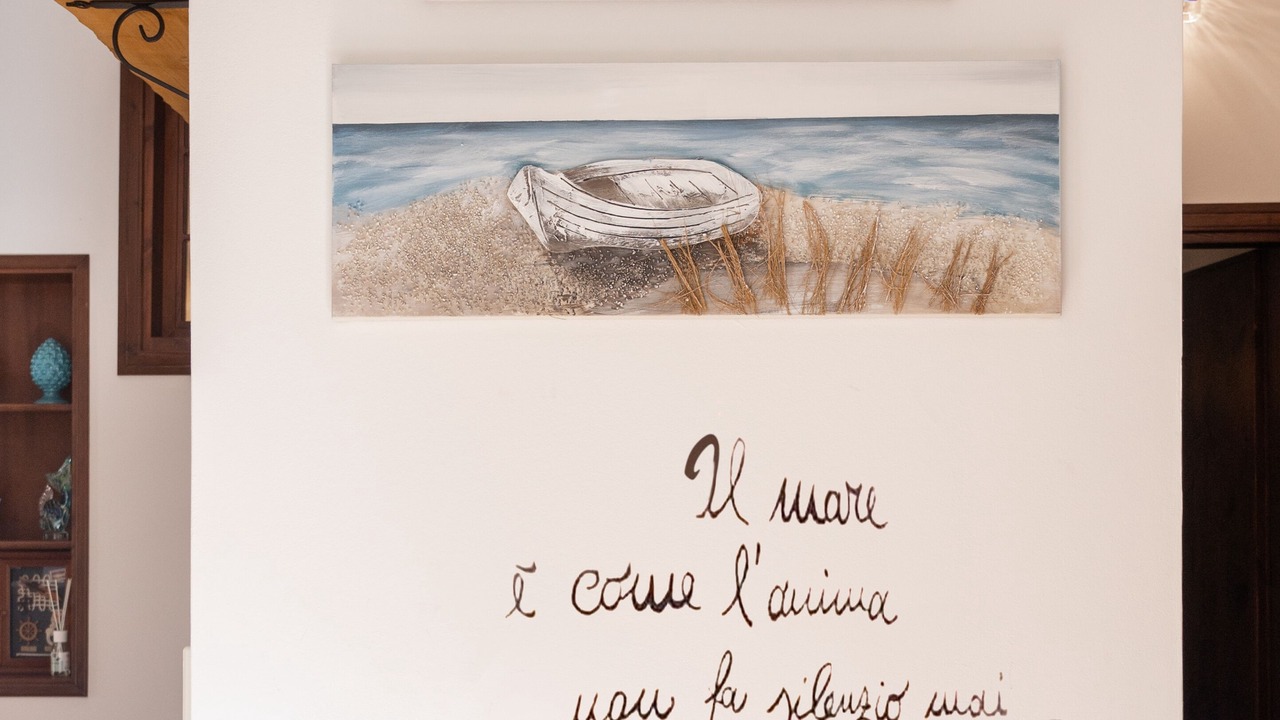 Il mare
è come l'anima
non fa silenzio mai